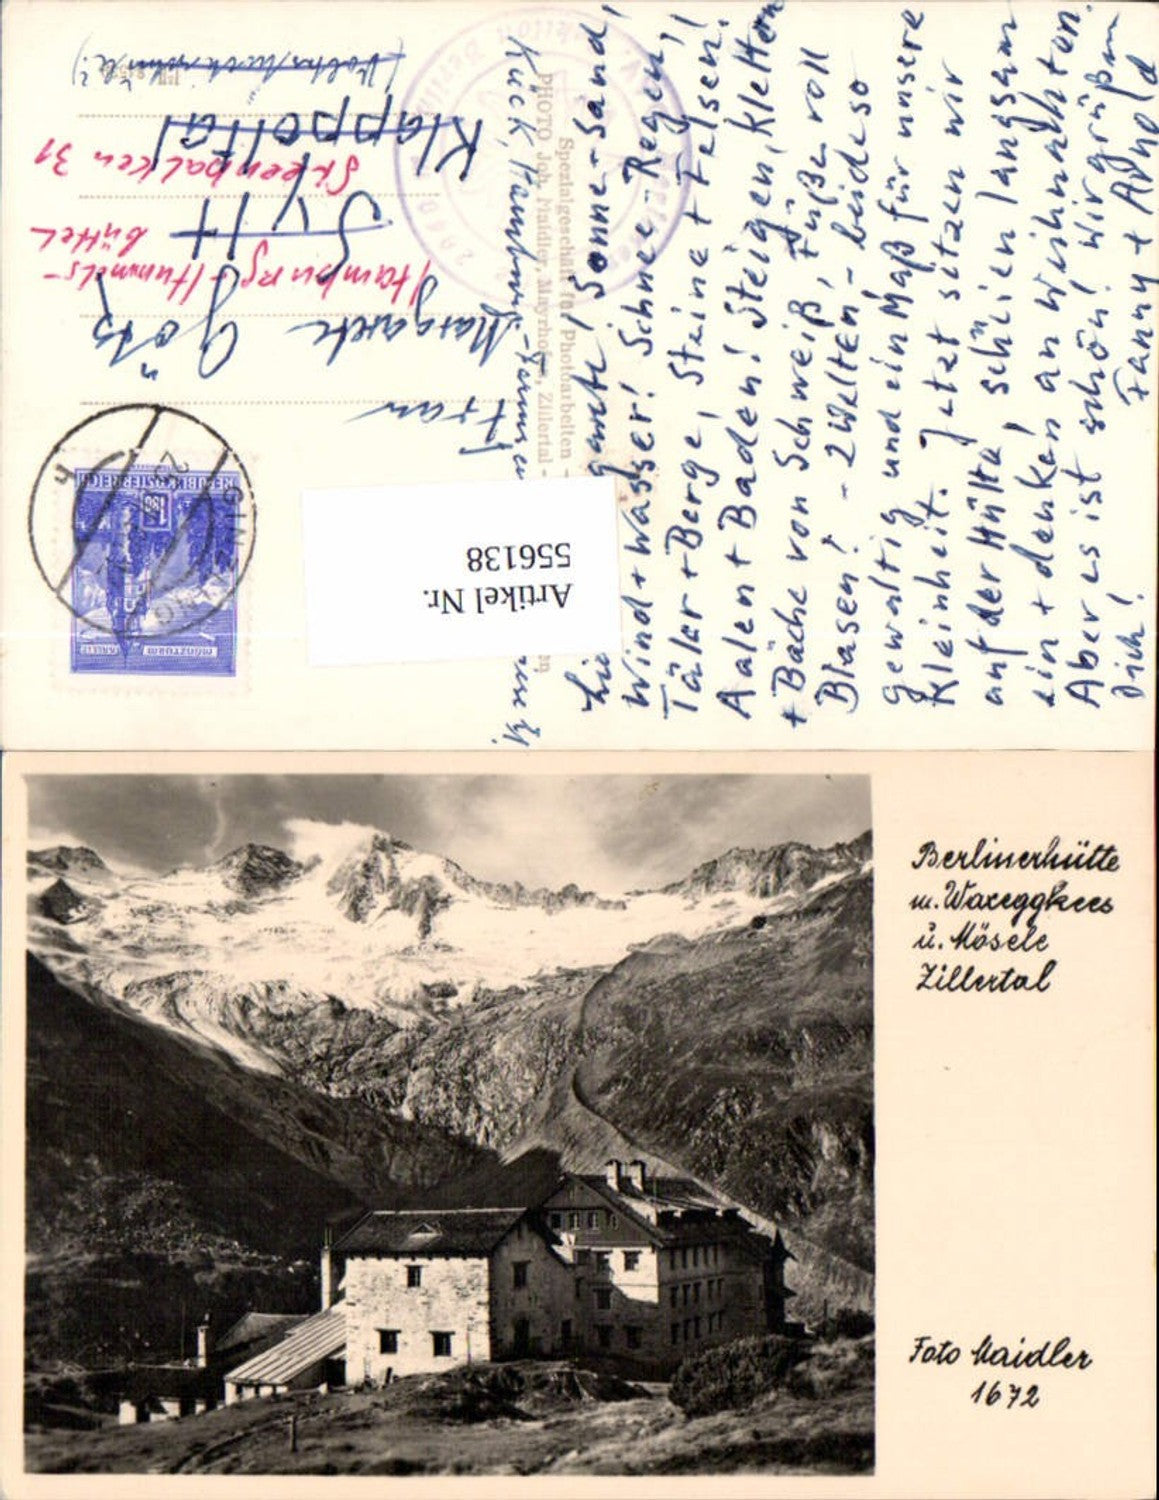 Liebe Margarete! Sonne - Sand,
Wind + Wasser! Schnee - Regen,
Täler + Berge, Steine + Felsen!
Aalen + Baden! Steigen, Klettern
+ Bäche von Schweiß, Füße voll
Blasen! - 2 Welten - beide so
gewaltig und ein Maß für unsere
Kleinheit. Jetzt sitzen wir
auf der Hütte, schneien langsam
ein + denken an Weihnachten.
Aber es ist schön! Wir grüßen
Dich!
Fanny + Arnold
Spezialgeschäft für Photoarbeiten -
PHOTO Joh. Maidler, Mayrhofen, Zillertal -
Frau
Margarete
Götz
Hamburg-Hummels-
büttel
Sylt
Steenbalken 31
Klappholttal
(Volkshochschule)
REPUBLIK ÖSTERREICH
MÜNZTURM
GINZLING
Artikel Nr.
556138
Berlinerhütte
m. Waxeggkees
u. Mösele
Zillertal
Foto Maidler
1672